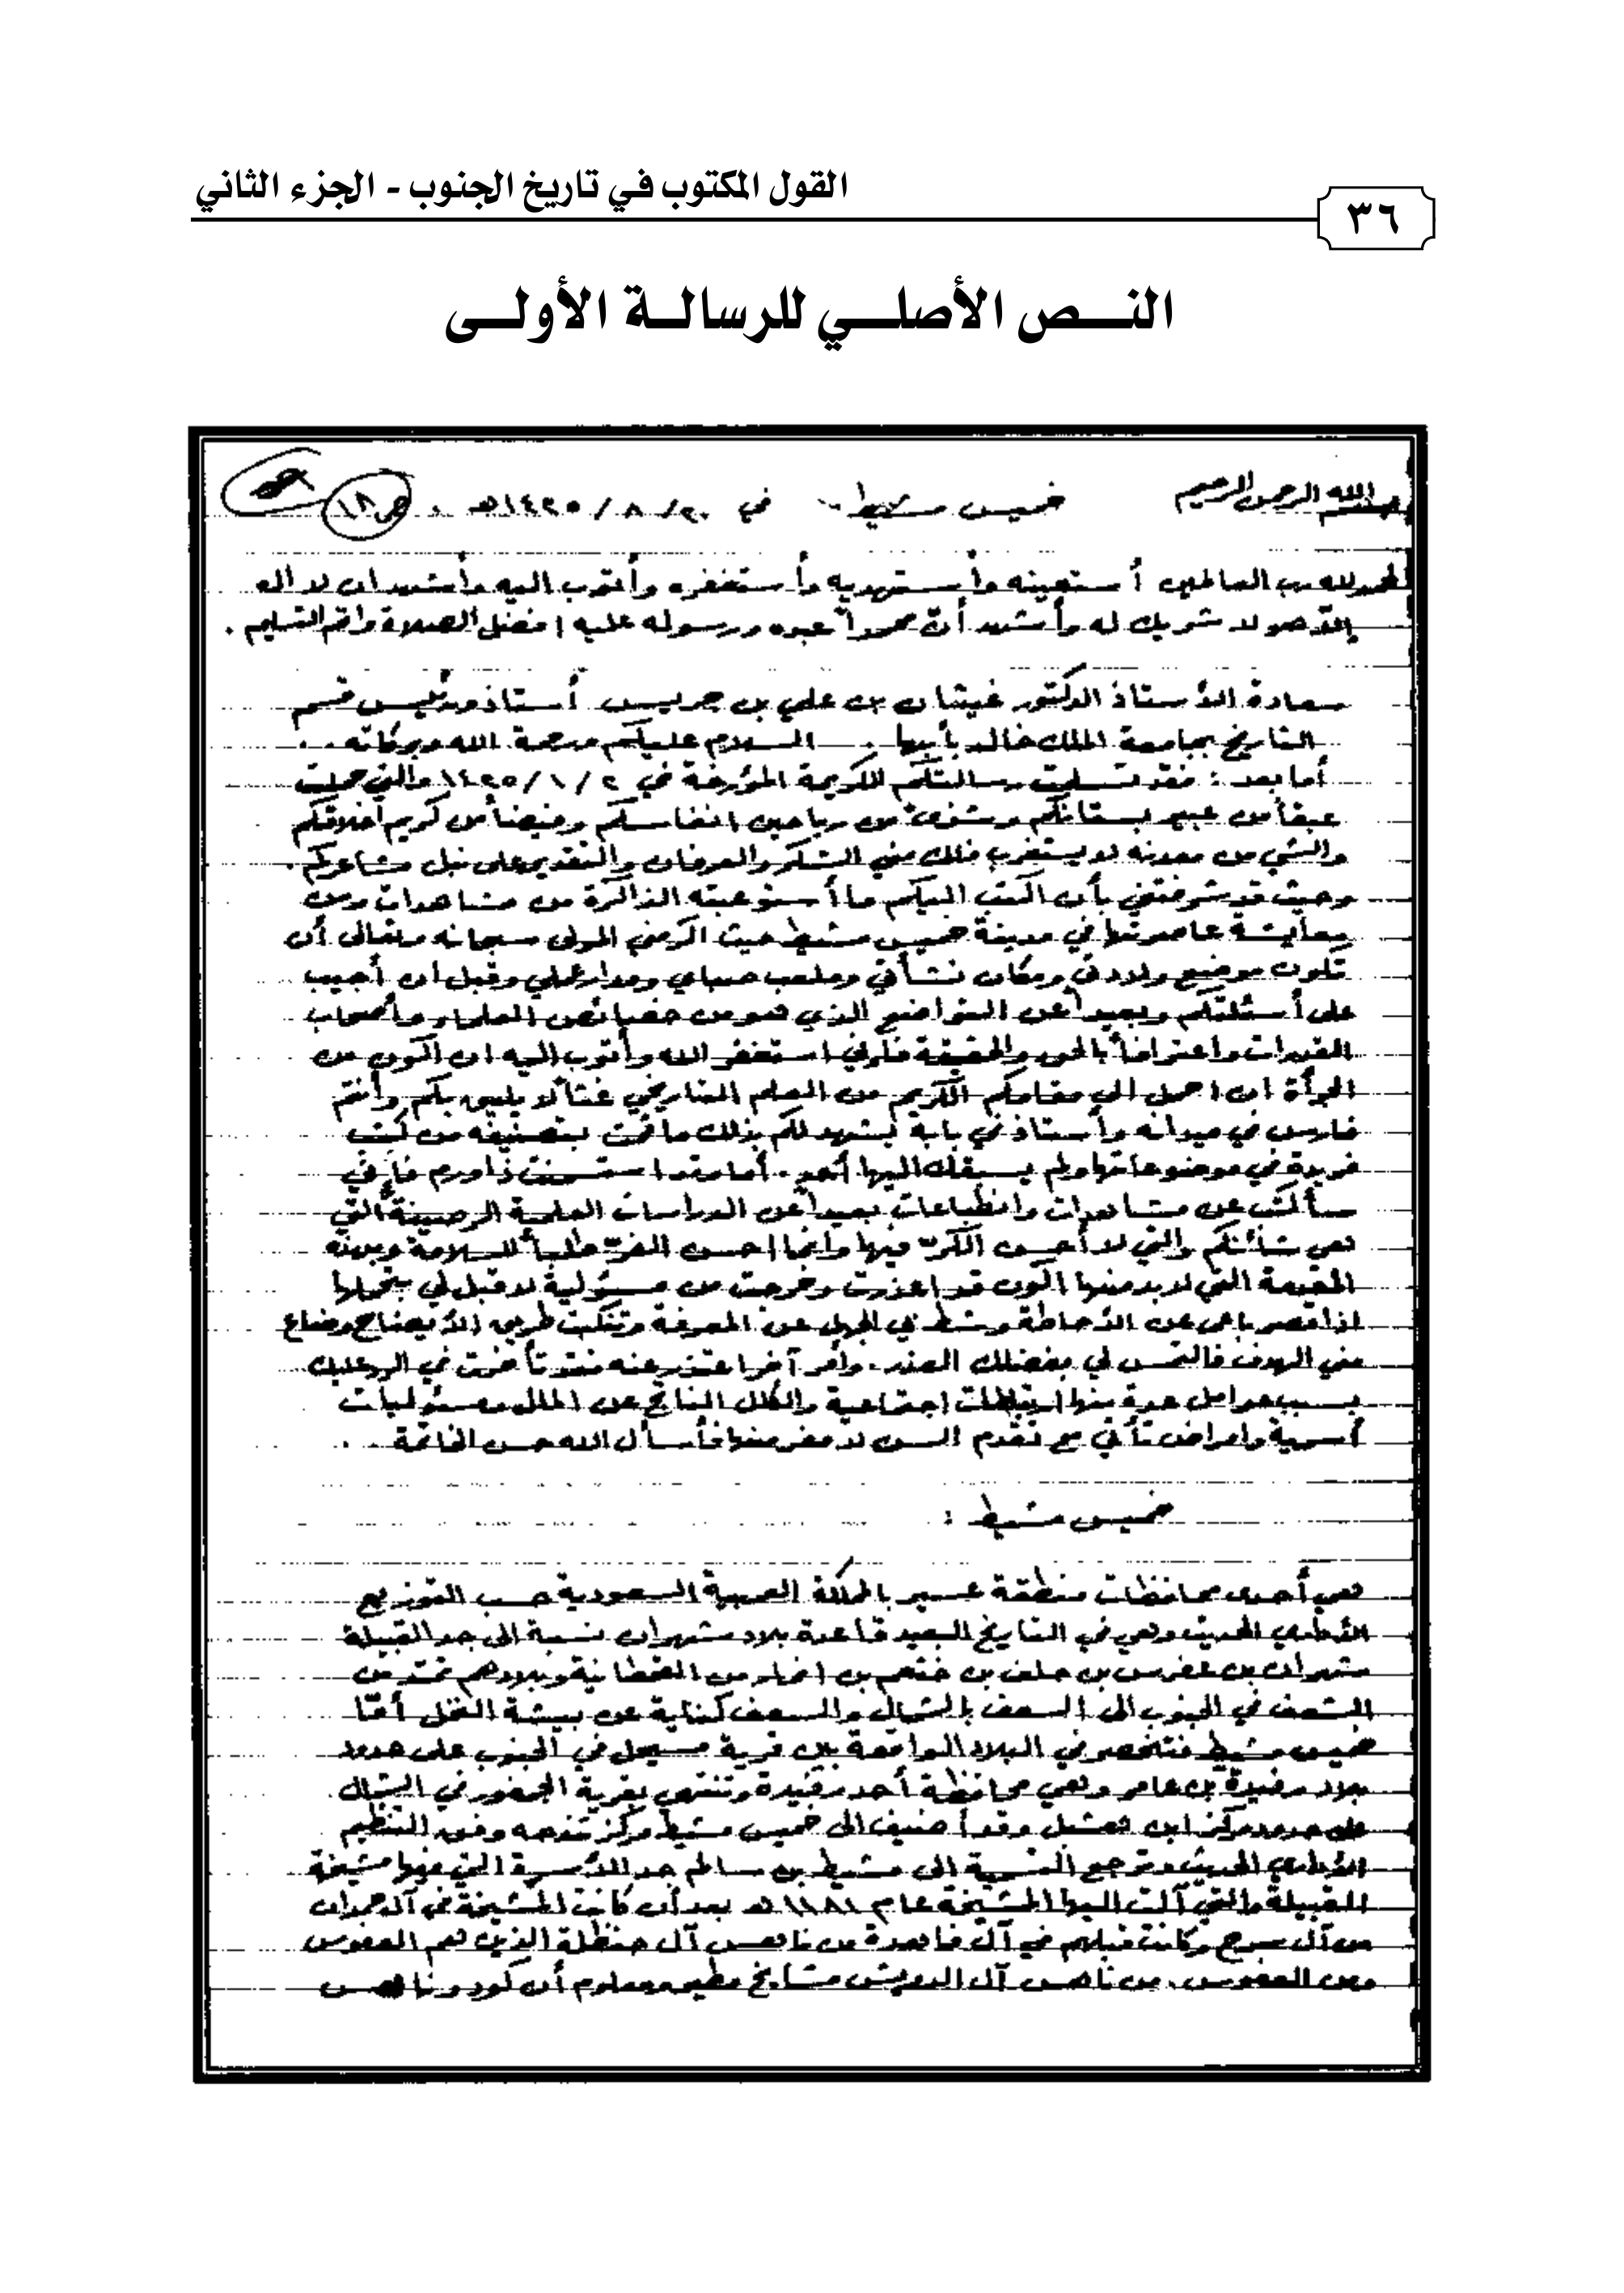 القول المكتوب في تاريخ الجنوب - الجزء الثاني
٣٦
النــص الأصلــي للرسالــة الأولــى
بسم الله الرحمن الرحيم خميس مشيط في ٢٠/٨/١٤٢٥هـ ص١٨
الحمد لله رب العالمين أستعينه وأستهديه وأستغفره وأتوب اليه وأشهد ان لا اله
إلا هو لا شريك له وأشهد أن محمداً عبده ورسوله عليه افضل الصلاة واتم التسليم .
سعادة الأستاذ الدكتور غيثان بن علي بن جريس أستاذ ورئيس قسم
التاريخ بجامعة الملك خالد بأبها . السلام عليكم ورحمة الله وبركاته ..
أما بعد : فقد تسلمت رسالتكم الكريمة المؤرخة في ٢/١/١٤٢٥ والتي حملت
عبقاً من عبير بستانكم وشذى من رياحين انفاسكم وفيضاً من كريم أخلاقكم
والشي من معدنه لا يستغرب فلك مني الشكر والعرفان والتقدير على نبل مشاعركم .
وحيث قد شرفتني بأن اكتب اليكم ما أستوعبته الذاكرة من مشاهدات ومن
معايشة عاصرتها في مدينة خميس مشيط حيث اكرمني المولى سبحانه وتعالى أن
تكون موضع ولادتي ومكان نشأتي وملعب صباي ومدار عملي وقبل ان أجيب
على أسئلتكم وبعيداً عن التواضع الذي هو من خصائص العلماء وأصحاب
القدرات واعترافاً بالحق والحقيقة فإني استغفر الله وأتوب اليه ان اكون من
الجرأة ان احمل الى مقامكم الكريم من العلم التاريخي غثاً لا يليق بكم وأنتم
فارس في ميدانه وأستاذ في بابه يشهد لكم بذلك ما قمت بتصنيفه من كتب
فريدة في موضوعاتها ولم يسبقك اليها أحد . أما وقد استسمنت ذا ورم فإني
سأكتب عن مشاهدات وانطباعات بعيداً عن الدراسات العلمية الرصينة التي
هي شأنكم والتي لا أحسن الكرّ فيها وانما احسن الفرّ طلباً للسلامة وبهذه
المقدمة التي لا بد منها اكون قد اعذرت وخرجت من مسؤلية لا قبل لي بتحملها
اذا قصر باعي عن الأحاطة وشط بي الجهل عن المعرفة وتنكبت طريق الأيضاح وضاع
مني الهدف فالتمس لي بفضلك العذر . وأمر آخر اعتذر عنه فقد تأخرت في الرد عليك
بسبب عوامل عدة منها ارتباطات اجتماعية والكلل الناتج عن الملل ومسئوليات
أسرية وامراض تأتي مع تقدم السن لا مفر منها فأسأل الله حسن الخاتمة ..
خميس مشيط :
هي أحدى محافظات منطقة عسير بالمملكة العربية السعودية حسب التوزيع
الأداري الحديث وهي في التاريخ البعيد قاعدة بلاد شهران نسبة الى جد القبيلة
شهران بن عفرس بن حلف بن خثعم بن انمار من القحطانية وبلادهم تمتد من
الشعف في الجنوب الى السعف بالشمال والسعف كناية عن بيشة النخل أمّا
خميس مشيط فتنحصر في البلاد الواقعة بين قرية في الجنوب على حدود
بلاد رفيدة بن عامر وهي محافظة أحد رفيدة وتنتهي بقرية في الشمال
على حدود مركز ابن هشبل وقد أضيف الى خميس مشيط مركز تندحه وفق التنظيم
الأداري الحديث وترجع التسمية الى مشيط بن سالم جد الأسرة التي فيها مشيخة
القبيلة والتي آلت اليها المشيخة عام هـ بعد أن كانت المشيخة في آل حمدان
من آل وكانت قبلهم في آل من ناهس آل حنظلة الذين هم
ومن . من ناهس آل الدويش مشايخ مطير ومعلوم أن كود وناهس